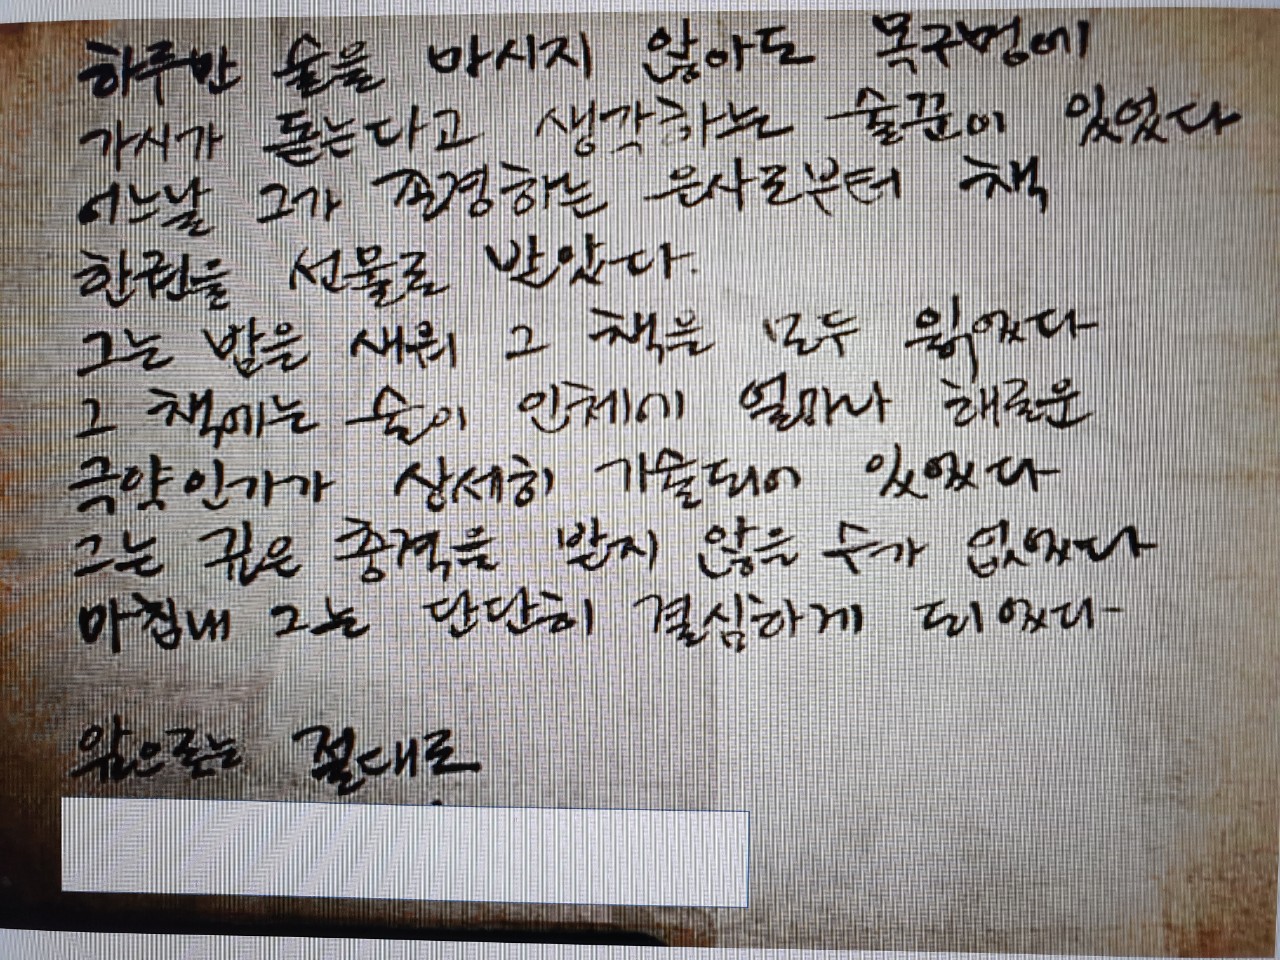 하루만 술을 마시지 않아도 목구멍에
가시가 돋는다고 생각하는 술꾼이 있었다
어느날 그가 존경하는 은사로부터 책
한권을 선물로 받았다.
그는 밤을 새워 그 책을 모두 읽었다
그 책에는 술이 인체에 얼마나 해로운
극약인가가 상세히 기술되어 있었다
그는 깊은 충격을 받지 않을 수가 없었다
마침내 그는 단단히 결심하게 되었다
앞으로는 절대로